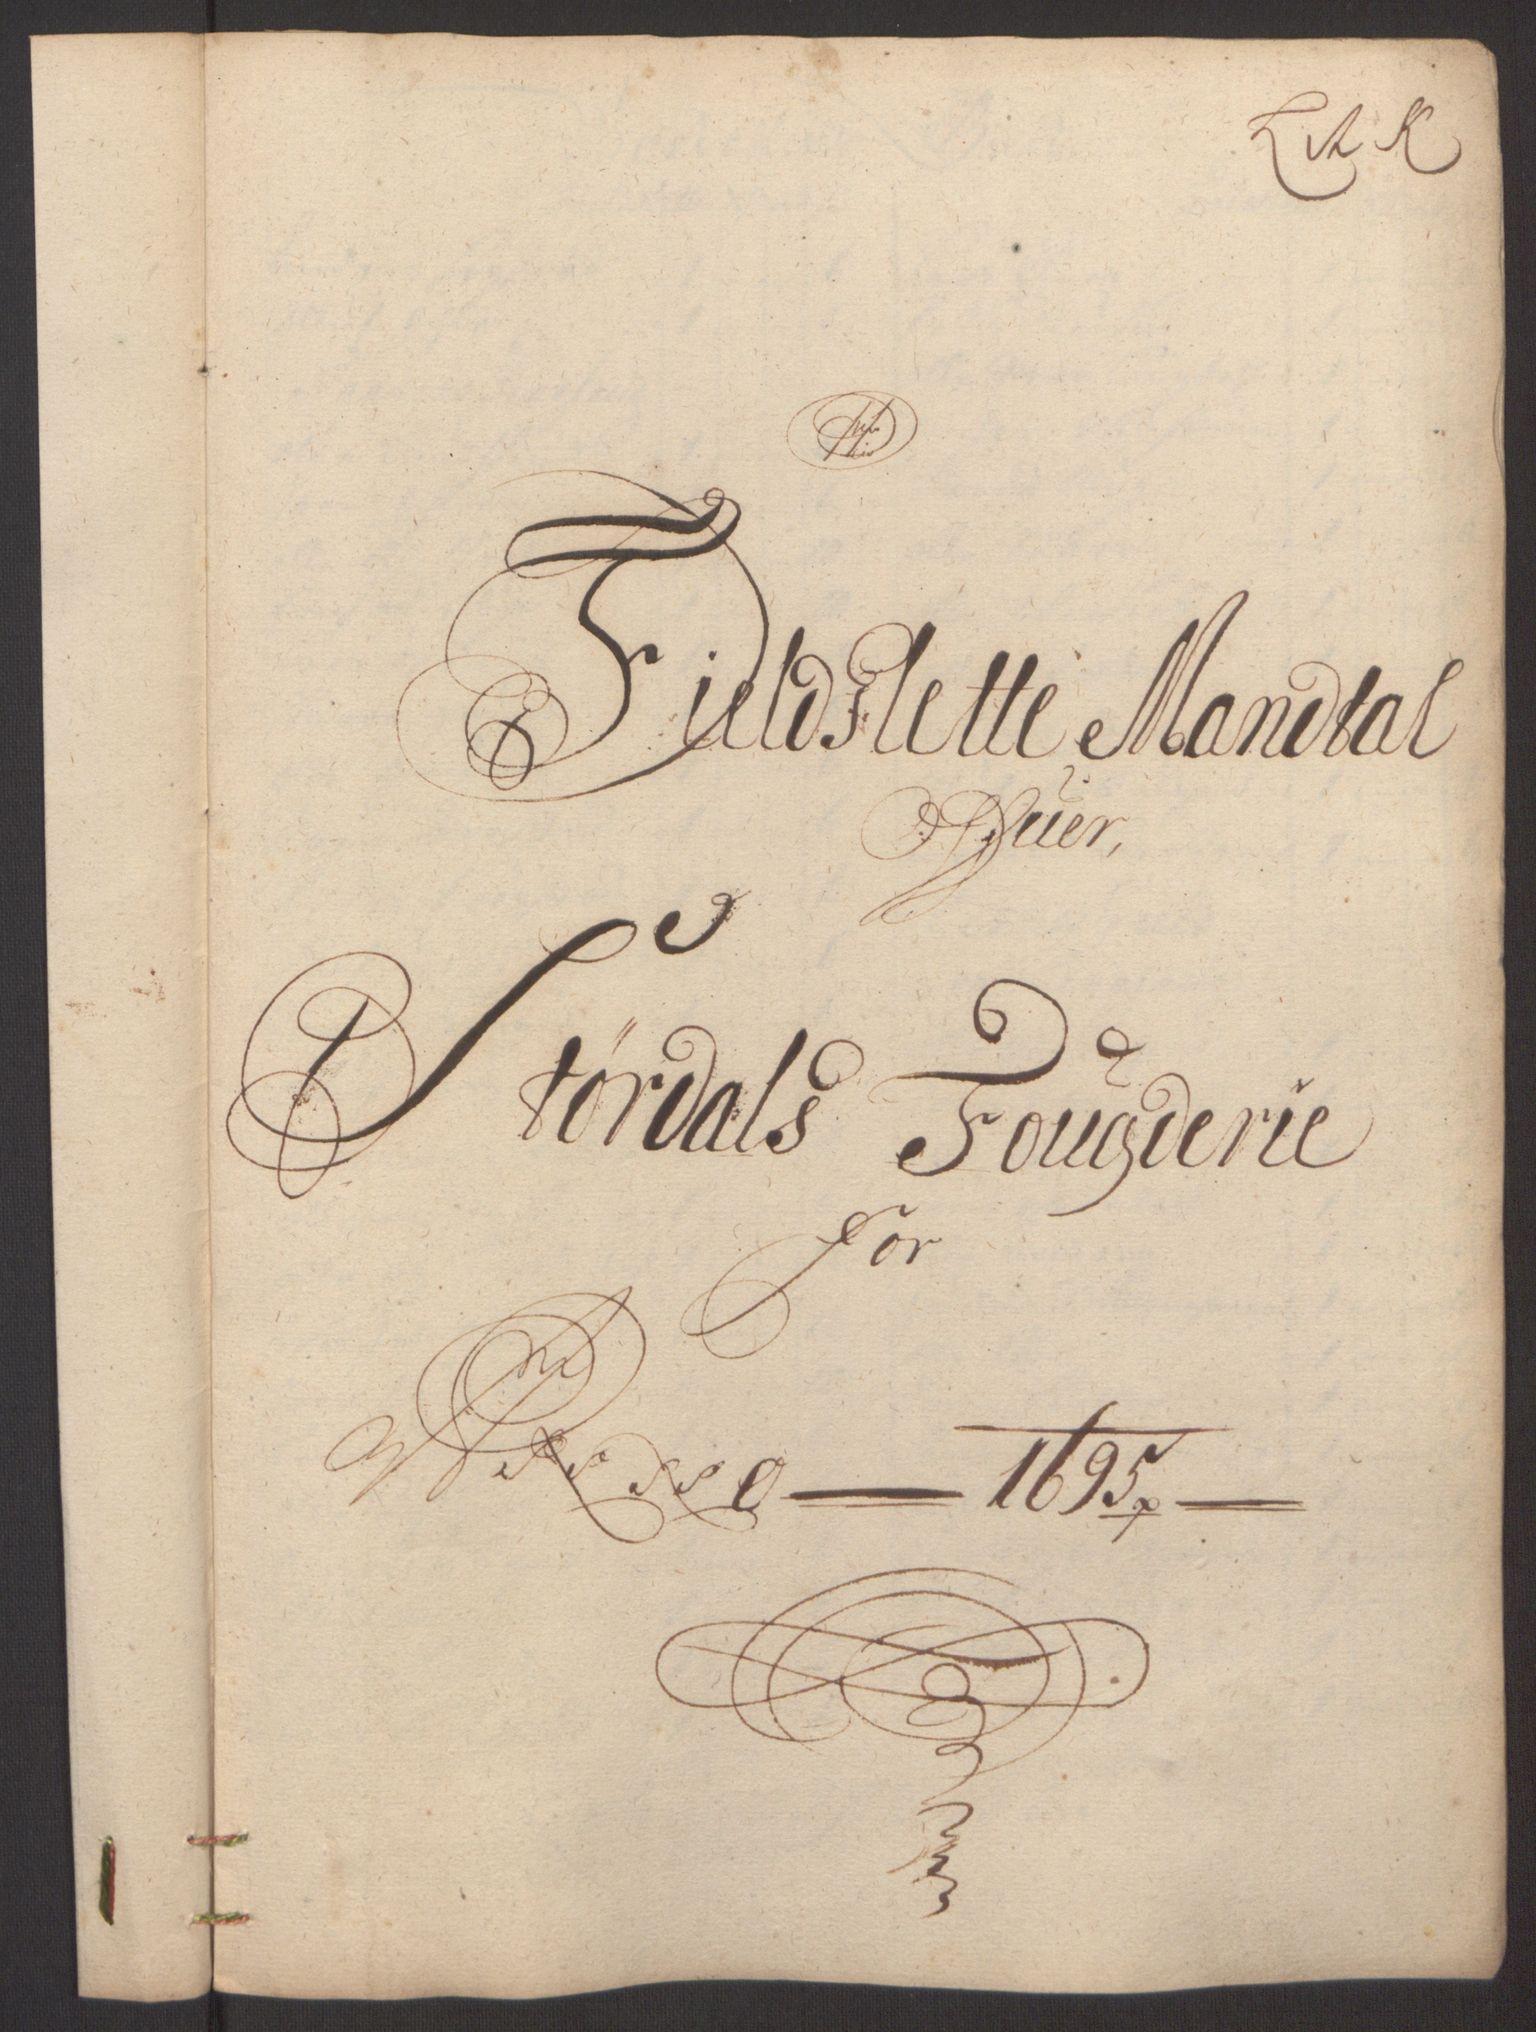 L A K
Fieldslette Mandtal
Ofuer,
Størdals Fougderie
for
Anno — 1695 —